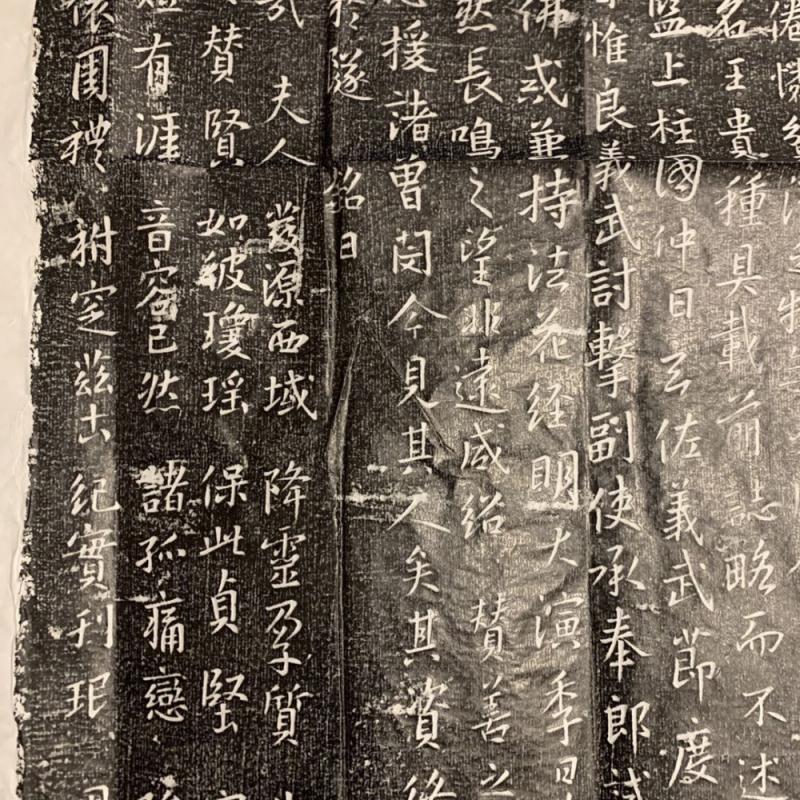 名王貴種具載前誌略而不述
監上柱國仲曰玄佐義武節度
惟良義武討擊副使承奉郎試
佛或兼持法花經明大演季曰
然長鳴之望非遠咸紹 贊善之
援諸曾閔今見其人矣其資
於隧 銘曰
夫人 發源西域 降靈孕質
贊賢 如彼瓊瑤 保此貞堅
有涯 音容已然 諸孤痛戀
懷周禮 祔窆茲吉 紀實刊珉